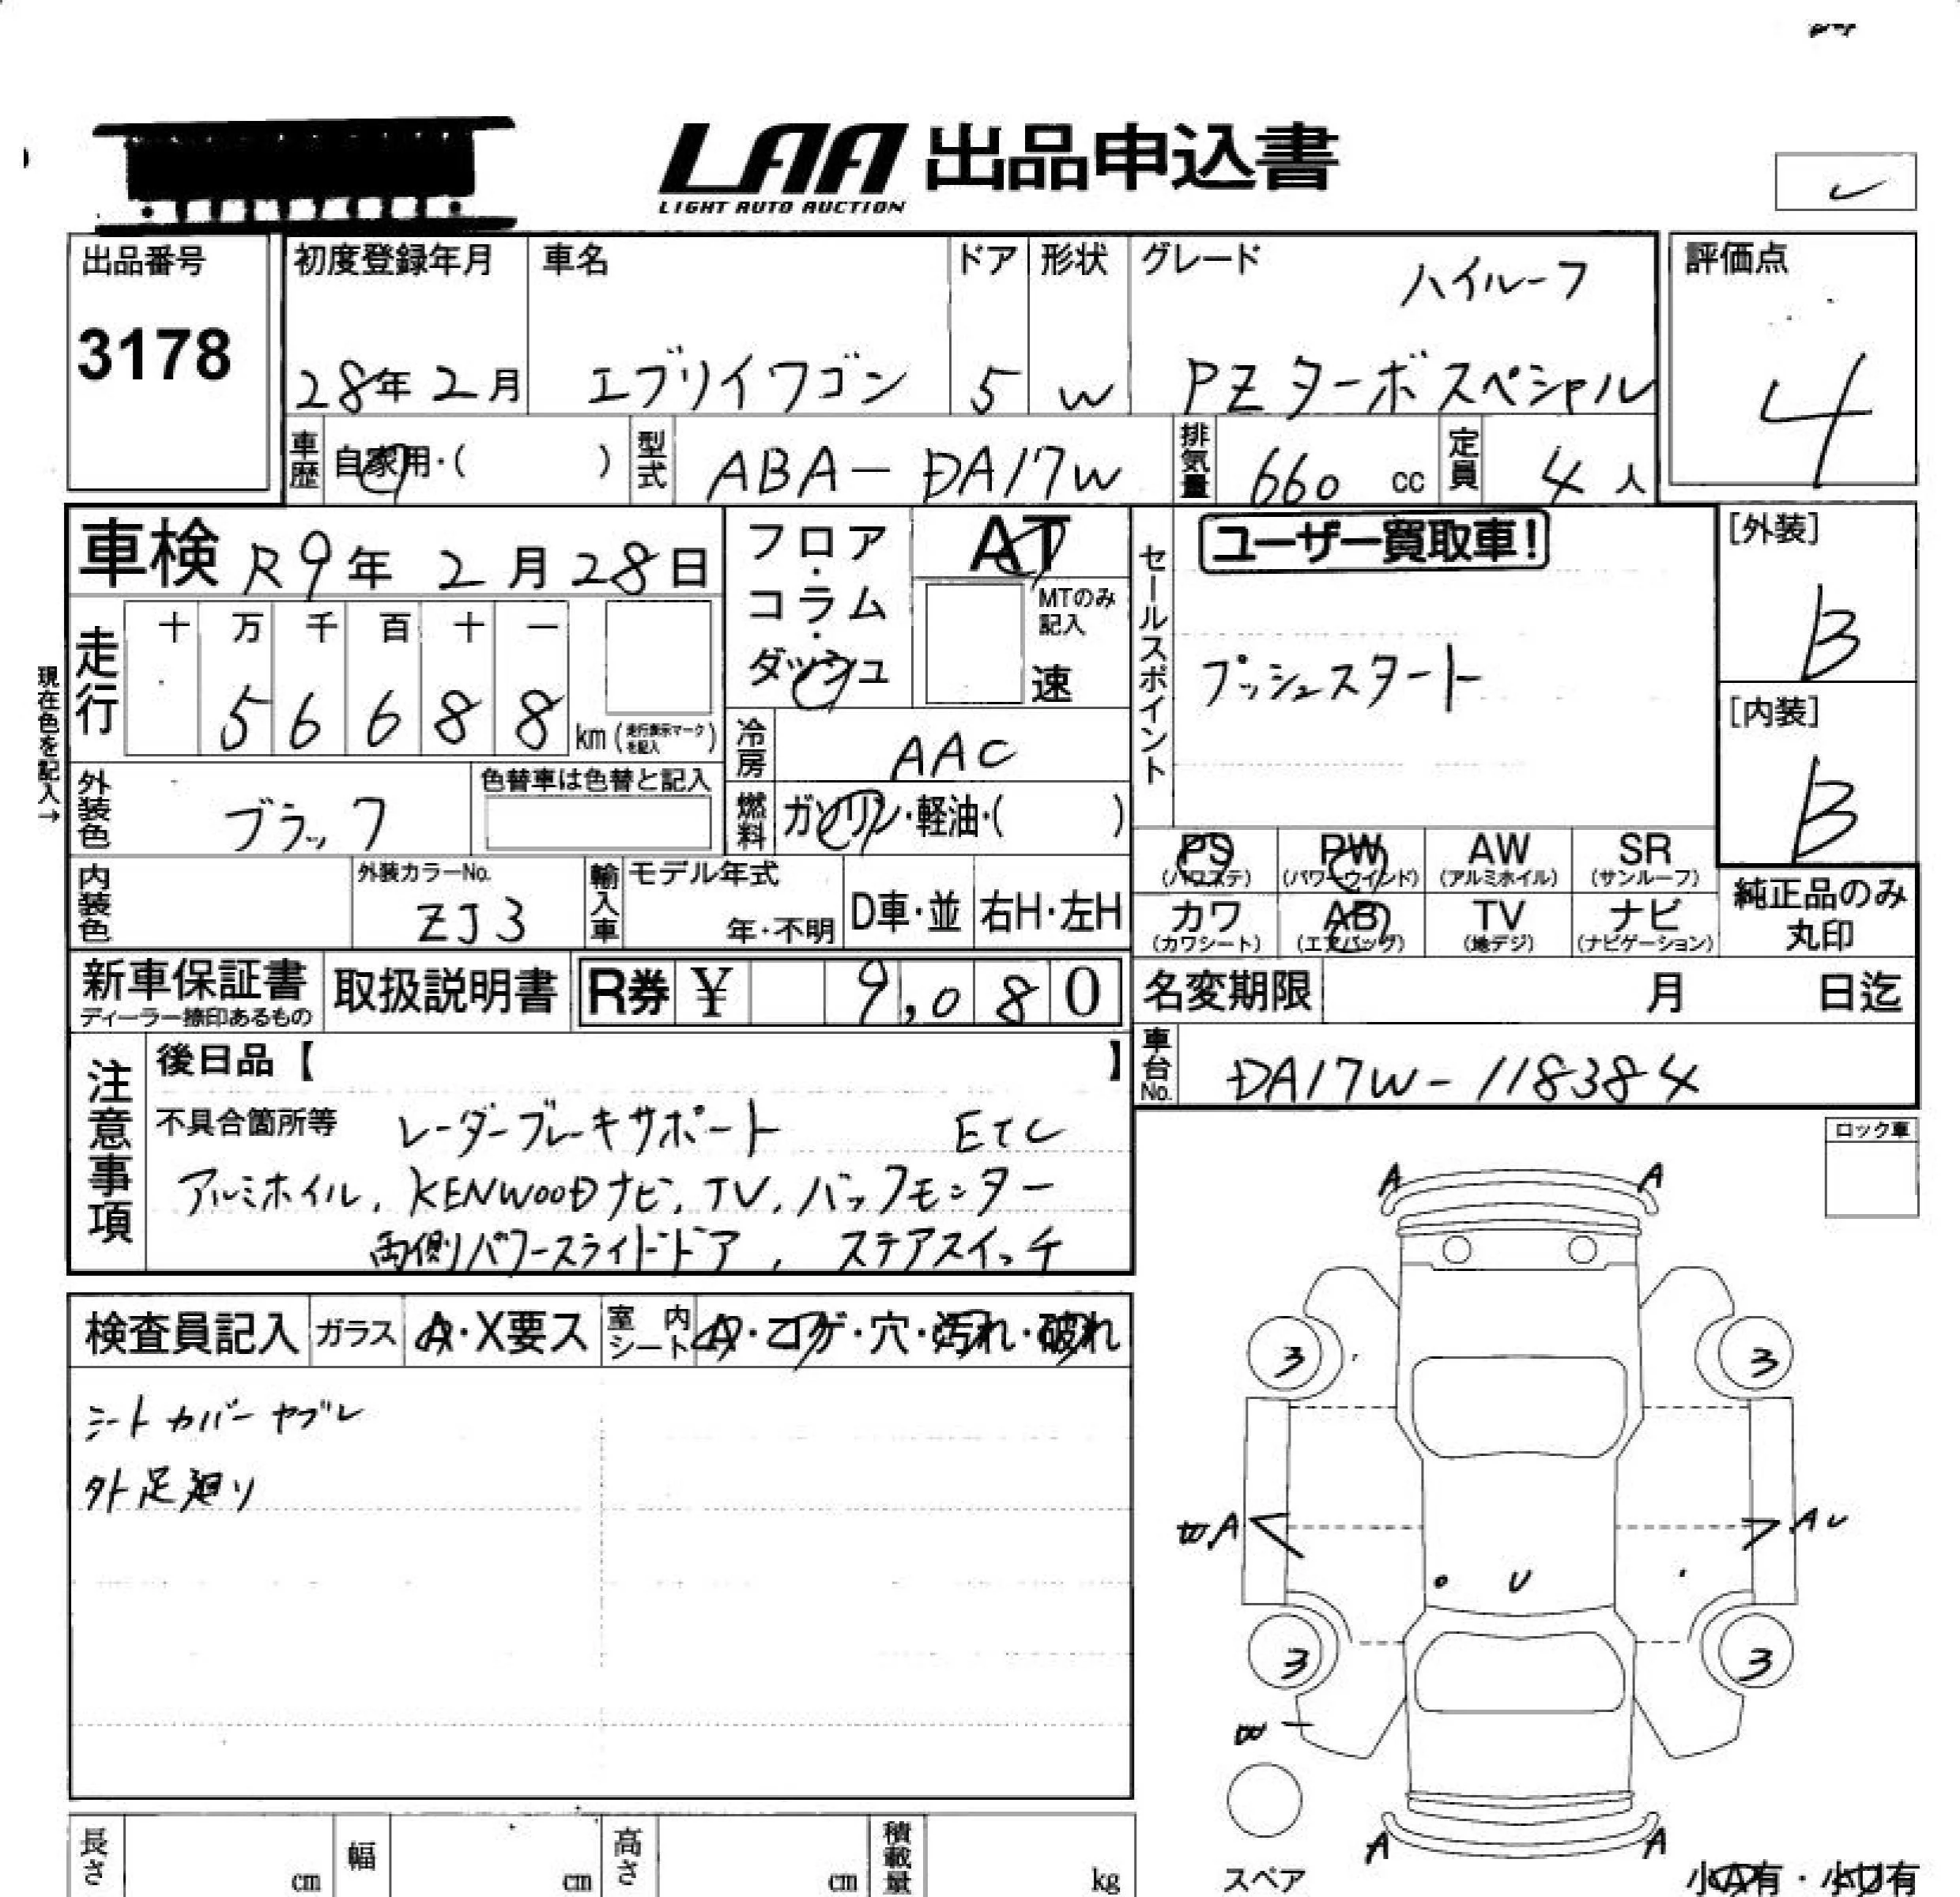 LAA 出品申込書
LIGHT AUTO AUCTION
出品番号
3178
初度登録年月
28年 2月
車名
エブリイワゴン
ドア
5
形状
W
グレード
ハイルーフ
PZ ターボ スペシャル
評価点
4
車歴 自家用・( )
型式 ABA-DA17W
排気量 660 cc
定員 4 人
車検 R9年 2月28日
フロア・コラム・ダッシュ
AT
MTのみ記入
速
セールスポイント
ユーザー買取車!
プッシュスタート
[外装]
B
[内装]
B
現在色を記入→
走行
十 万 千 百 十 一
5 6 6 8 8 km (走行表示マークを記入)
冷房 AAC
外装色 ブラック
色替車は色替と記入
燃料 ガソリン・軽油・( )
内装色
外装カラーNo.
ZJ3
輸入車 モデル年式
年・不明
D車・並 右H・左H
PS (パワステ) PW (パワーウインド) AW (アルミホイル) SR (サンルーフ)
カワ (カワシート) AB (エアバッグ) TV (地デジ) ナビ (ナビゲーション)
純正品のみ
丸印
新車保証書
ディーラー捺印あるもの
取扱説明書
R券 ¥ 9,080
名変期限 月 日迄
車台No. DA17W-118384
注意事項
後日品【 】
不具合箇所等 レーダーブレーキサポート ETC
アルミホイル, KENWOODナビ, TV, バックモニター
両側パワースライドドア, ステアスイッチ
ロック車
検査員記入 ガラス A・X要ス 室内シート A・コゲ・穴・汚れ・破れ
シートカバー ヤブレ
外 足廻り
A A
3 3
A AU
U
3 3
A A
スペア
小A有・小U有
長さ cm 幅 cm 高さ cm 積載量 kg